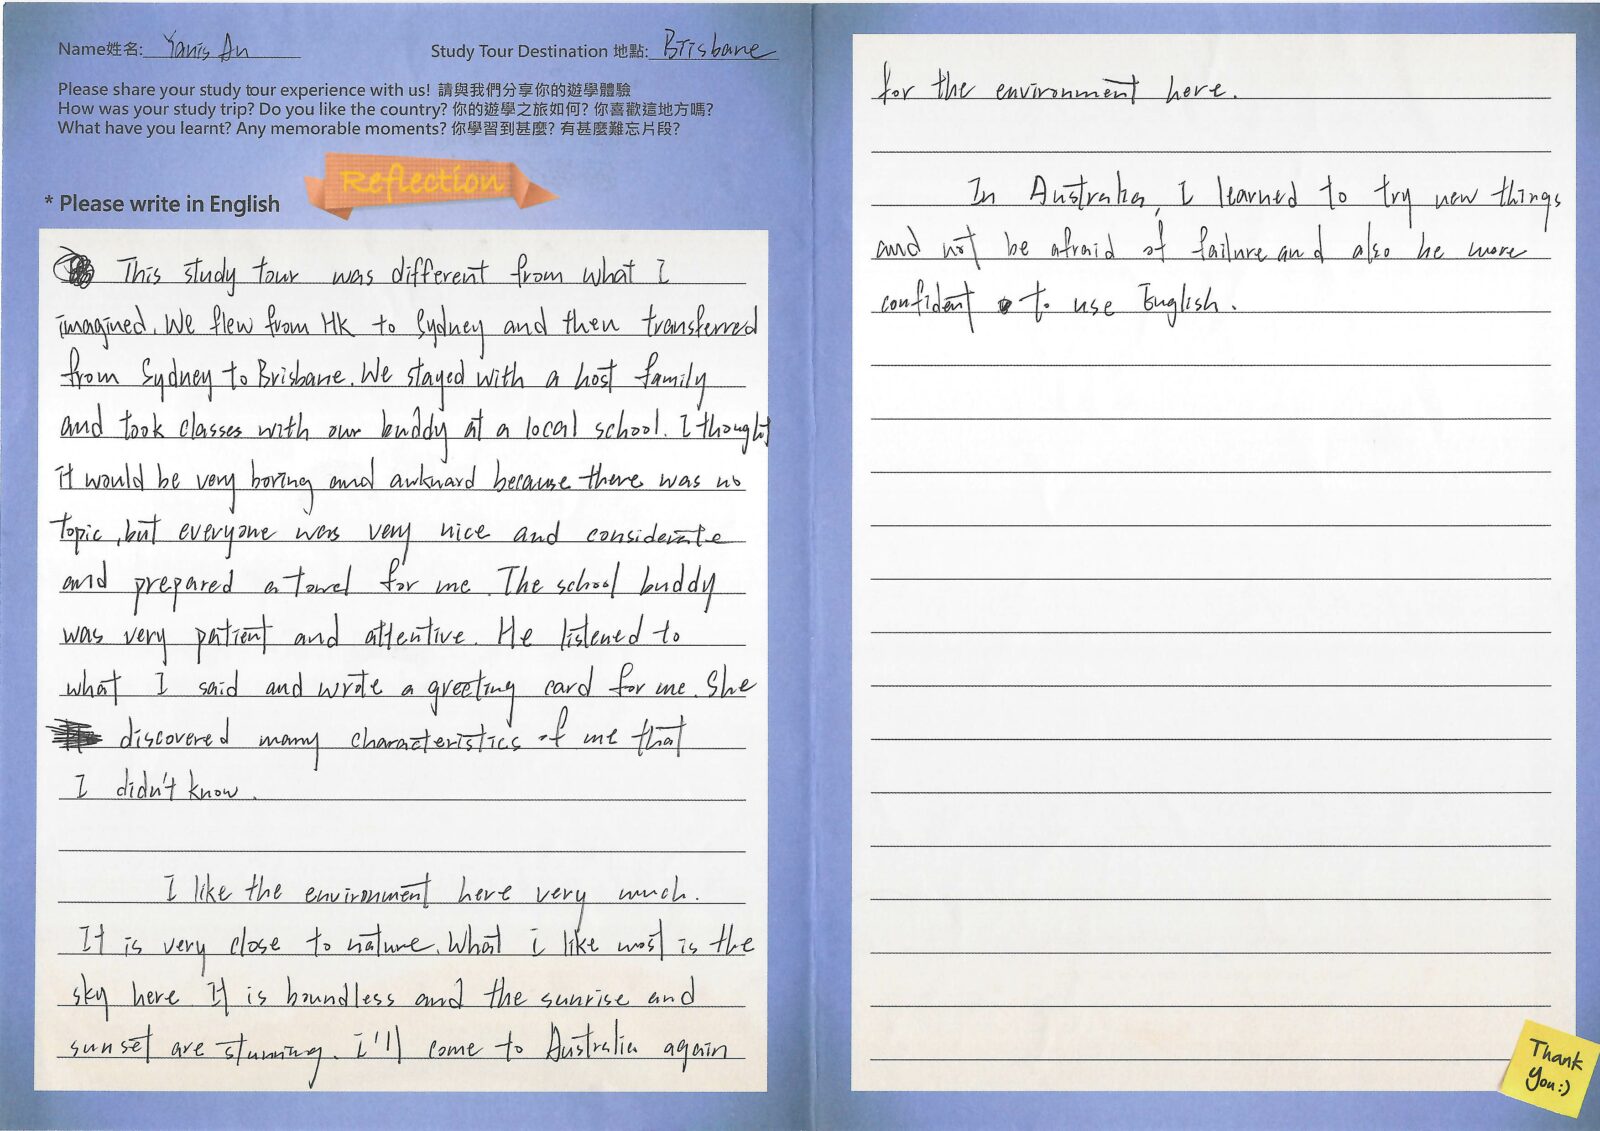 Name姓名: Yanis An
Study Tour Destination 地點: Brisbane
Please share your study tour experience with us! 請與我們分享你的遊學體驗
How was your study trip? Do you like the country? 你的遊學之旅如何? 你喜歡這地方嗎?
What have you learnt? Any memorable moments? 你學習到甚麼? 有甚麼難忘片段?
Reflection
* Please write in English
This study tour was different from what I
imagined. We flew from HK to Sydney and then transferred
from Sydney to Brisbane. We stayed with a host family
and took classes with our buddy at a local school. I thought
it would be very boring and awkward because there was no
topic, but everyone was very nice and considerate
and prepared a towel for me. The school buddy
was very patient and attentive. He listened to
what I said and wrote a greeting card for me. She
discovered many characteristics of me that
I didn't know.
I like the environment here very much.
It is very close to nature. What i like most is the
sky here. It is boundless and the sunrise and
sunset are stunning. I'll come to Australia again
for the environment here.
In Australia, I learned to try new things
and not be afraid of failure and also be more
confident to use English.
Thank
You:)